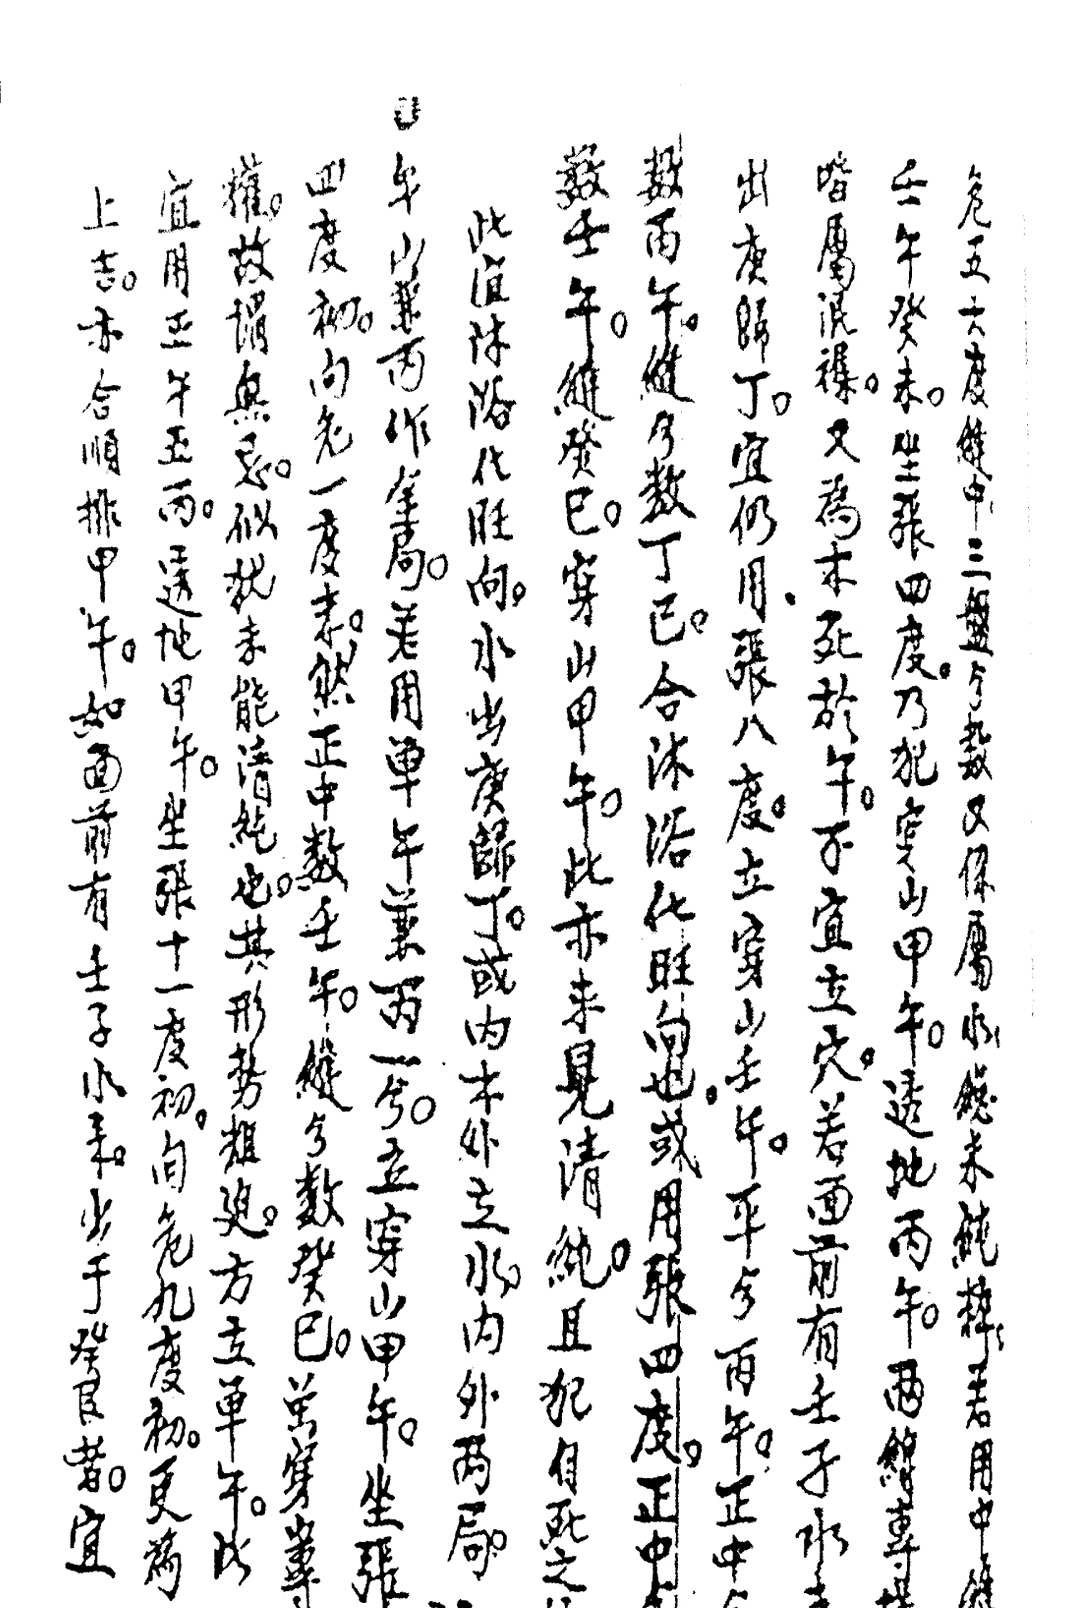 危五六度縫中三盤分数又係屬水縫未純粹若用中縫
壬午癸未。坐張四度。乃犯穿山甲午。透地丙午。兩縫專
皆屬混襍。又為木死於午。不宜立穴。若面前有壬子水
出庚歸丁。宜仍用張八度。立穿山壬午。平分丙午。正中
数丙午。縫分数丁巳。合沐浴化旺向也。或用張四度。正中
数壬午。縫癸巳。穿山甲午。此亦未見清純。且犯自死之
此宜沐浴化旺向。水出庚歸丁。或内木外立水。内外两局。
午山兼丙作全局。若用单午兼丙一分。立穿山甲午。坐張
四度初。向危一度末。然正中数壬午。縫分数癸巳。当穿專
權。故謂無忌。似犹未能清純也。其形勢粗廹。方立单午。此
宜用正午正丙。透地甲午。坐張十一度初。向危九度初。更為
上吉。亦合順排甲午。如面前有壬子水来。出于癸艮者。宜